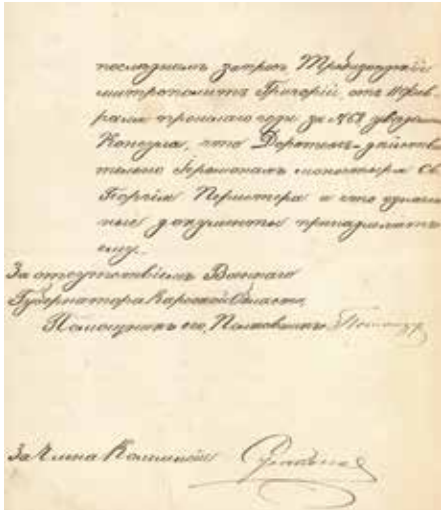 последнемъ запросъ, Трапезундскій
митрополитъ Григорій, отъ 11 фев-
раля прошлаго года за №61 увѣдомилъ
Консула, что Доротей дѣйстви-
тельно Іеромонахъ монастыря Св.
Георгія Перистера и что означен-
ные документы принадлежатъ
ему.
За отсутствіемъ Военнаго
Губернатора Карсской Области,
Помощникъ его, Полковникъ
За Члена Коммисіи